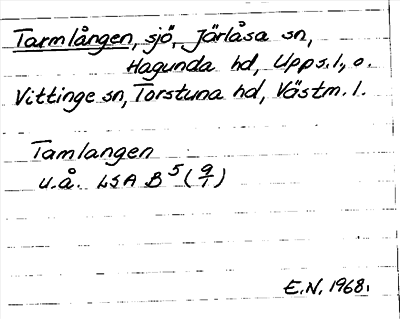 Tarmlången, sjö, Järlåsa sn,
Hagunda hd, Upps.l., o.
Vittinge sn, Torstuna hd, Västm.l.
Tamlangen
u.å. LSA B 5 (9/1)
E.N. 1968.